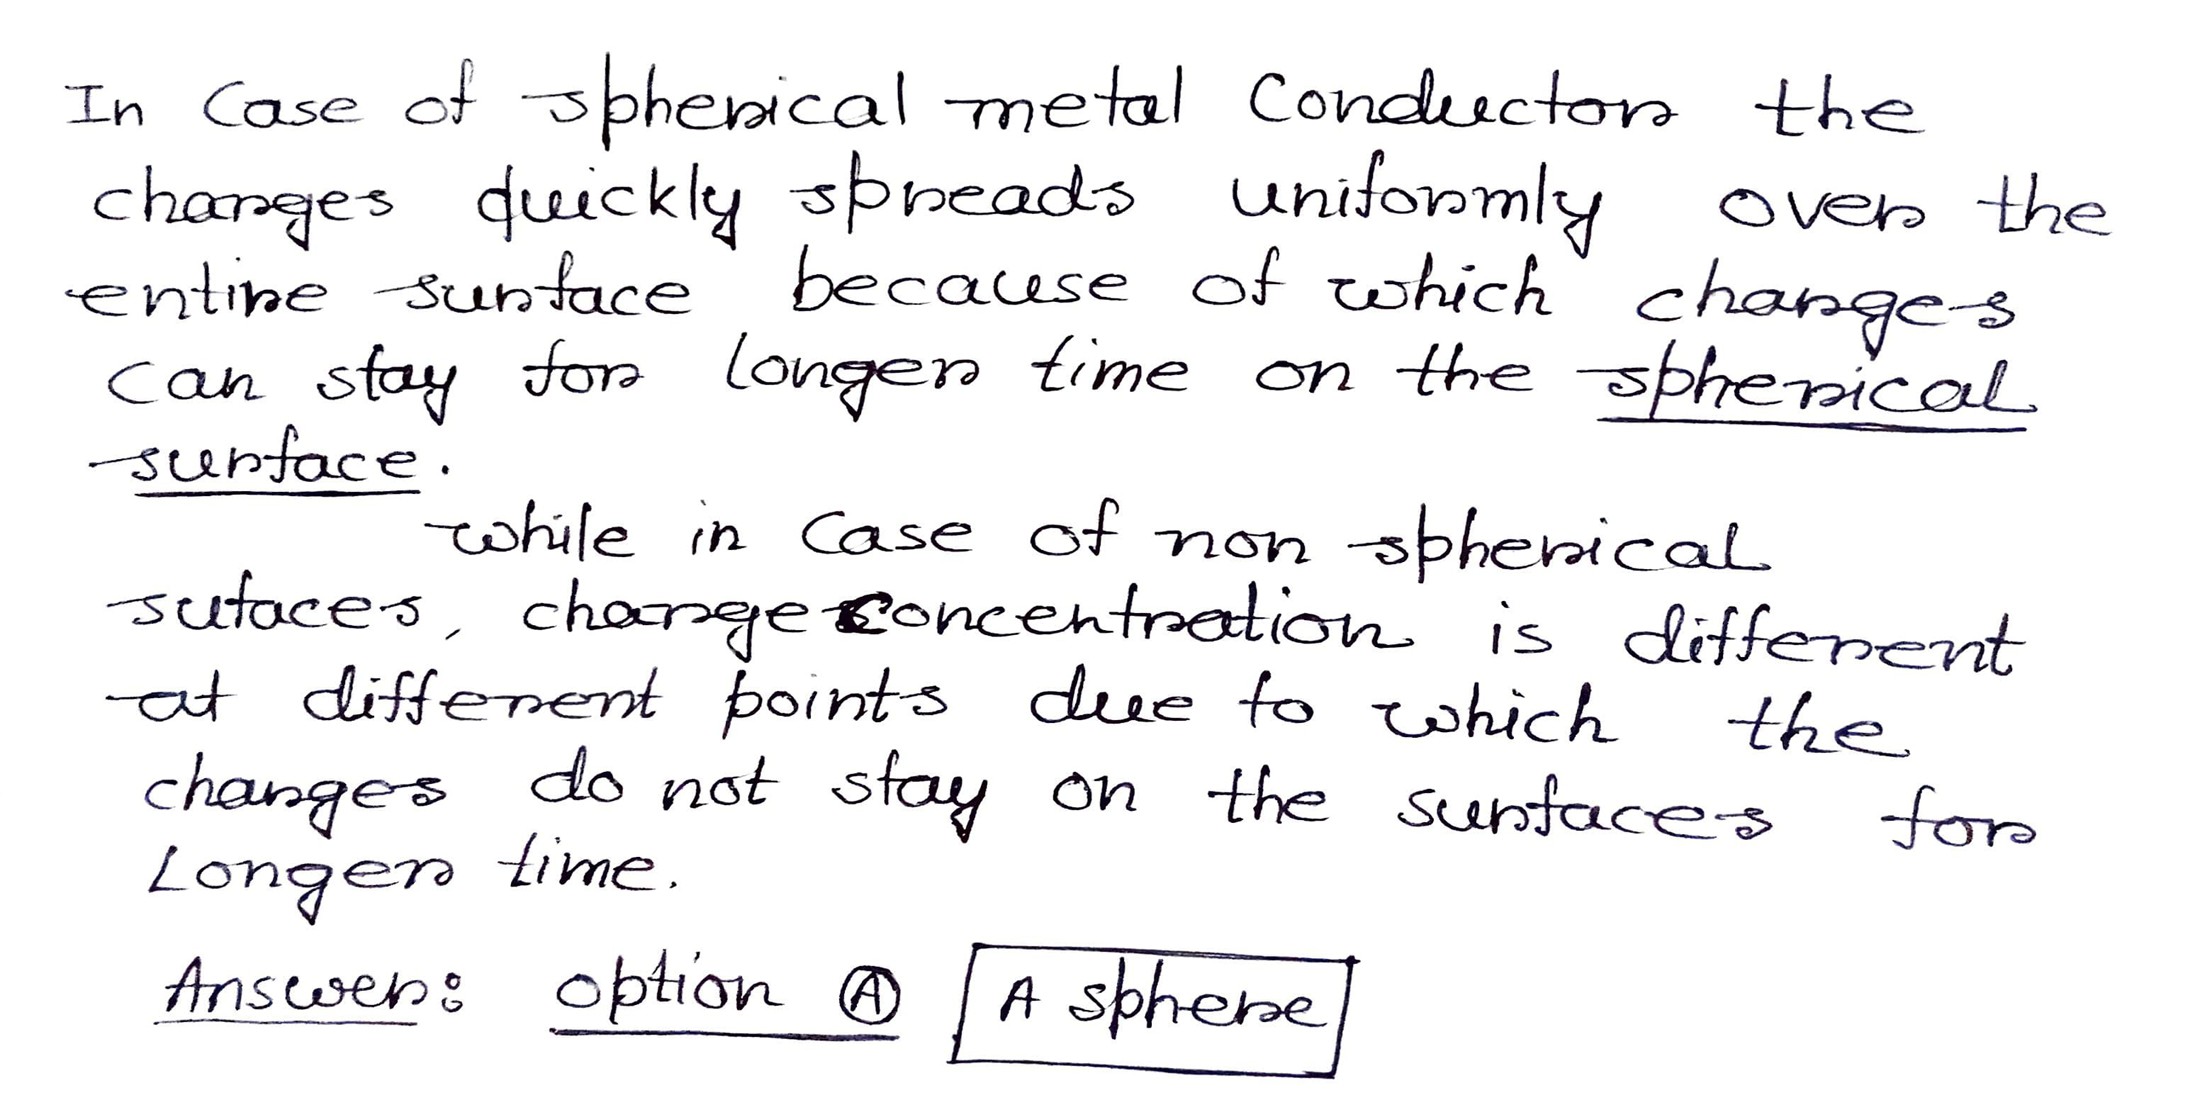 In Case of spherical metal Conductor the
charges quickly spreads uniformly over the
entire surface because of which charges
can stay for longer time on the spherical
surface.
while in Case of non spherical
sufaces, charge concentration is different
at different points due to which the
charges do not stay on the surfaces for
Longer time.
Answer: option Ⓐ A sphere